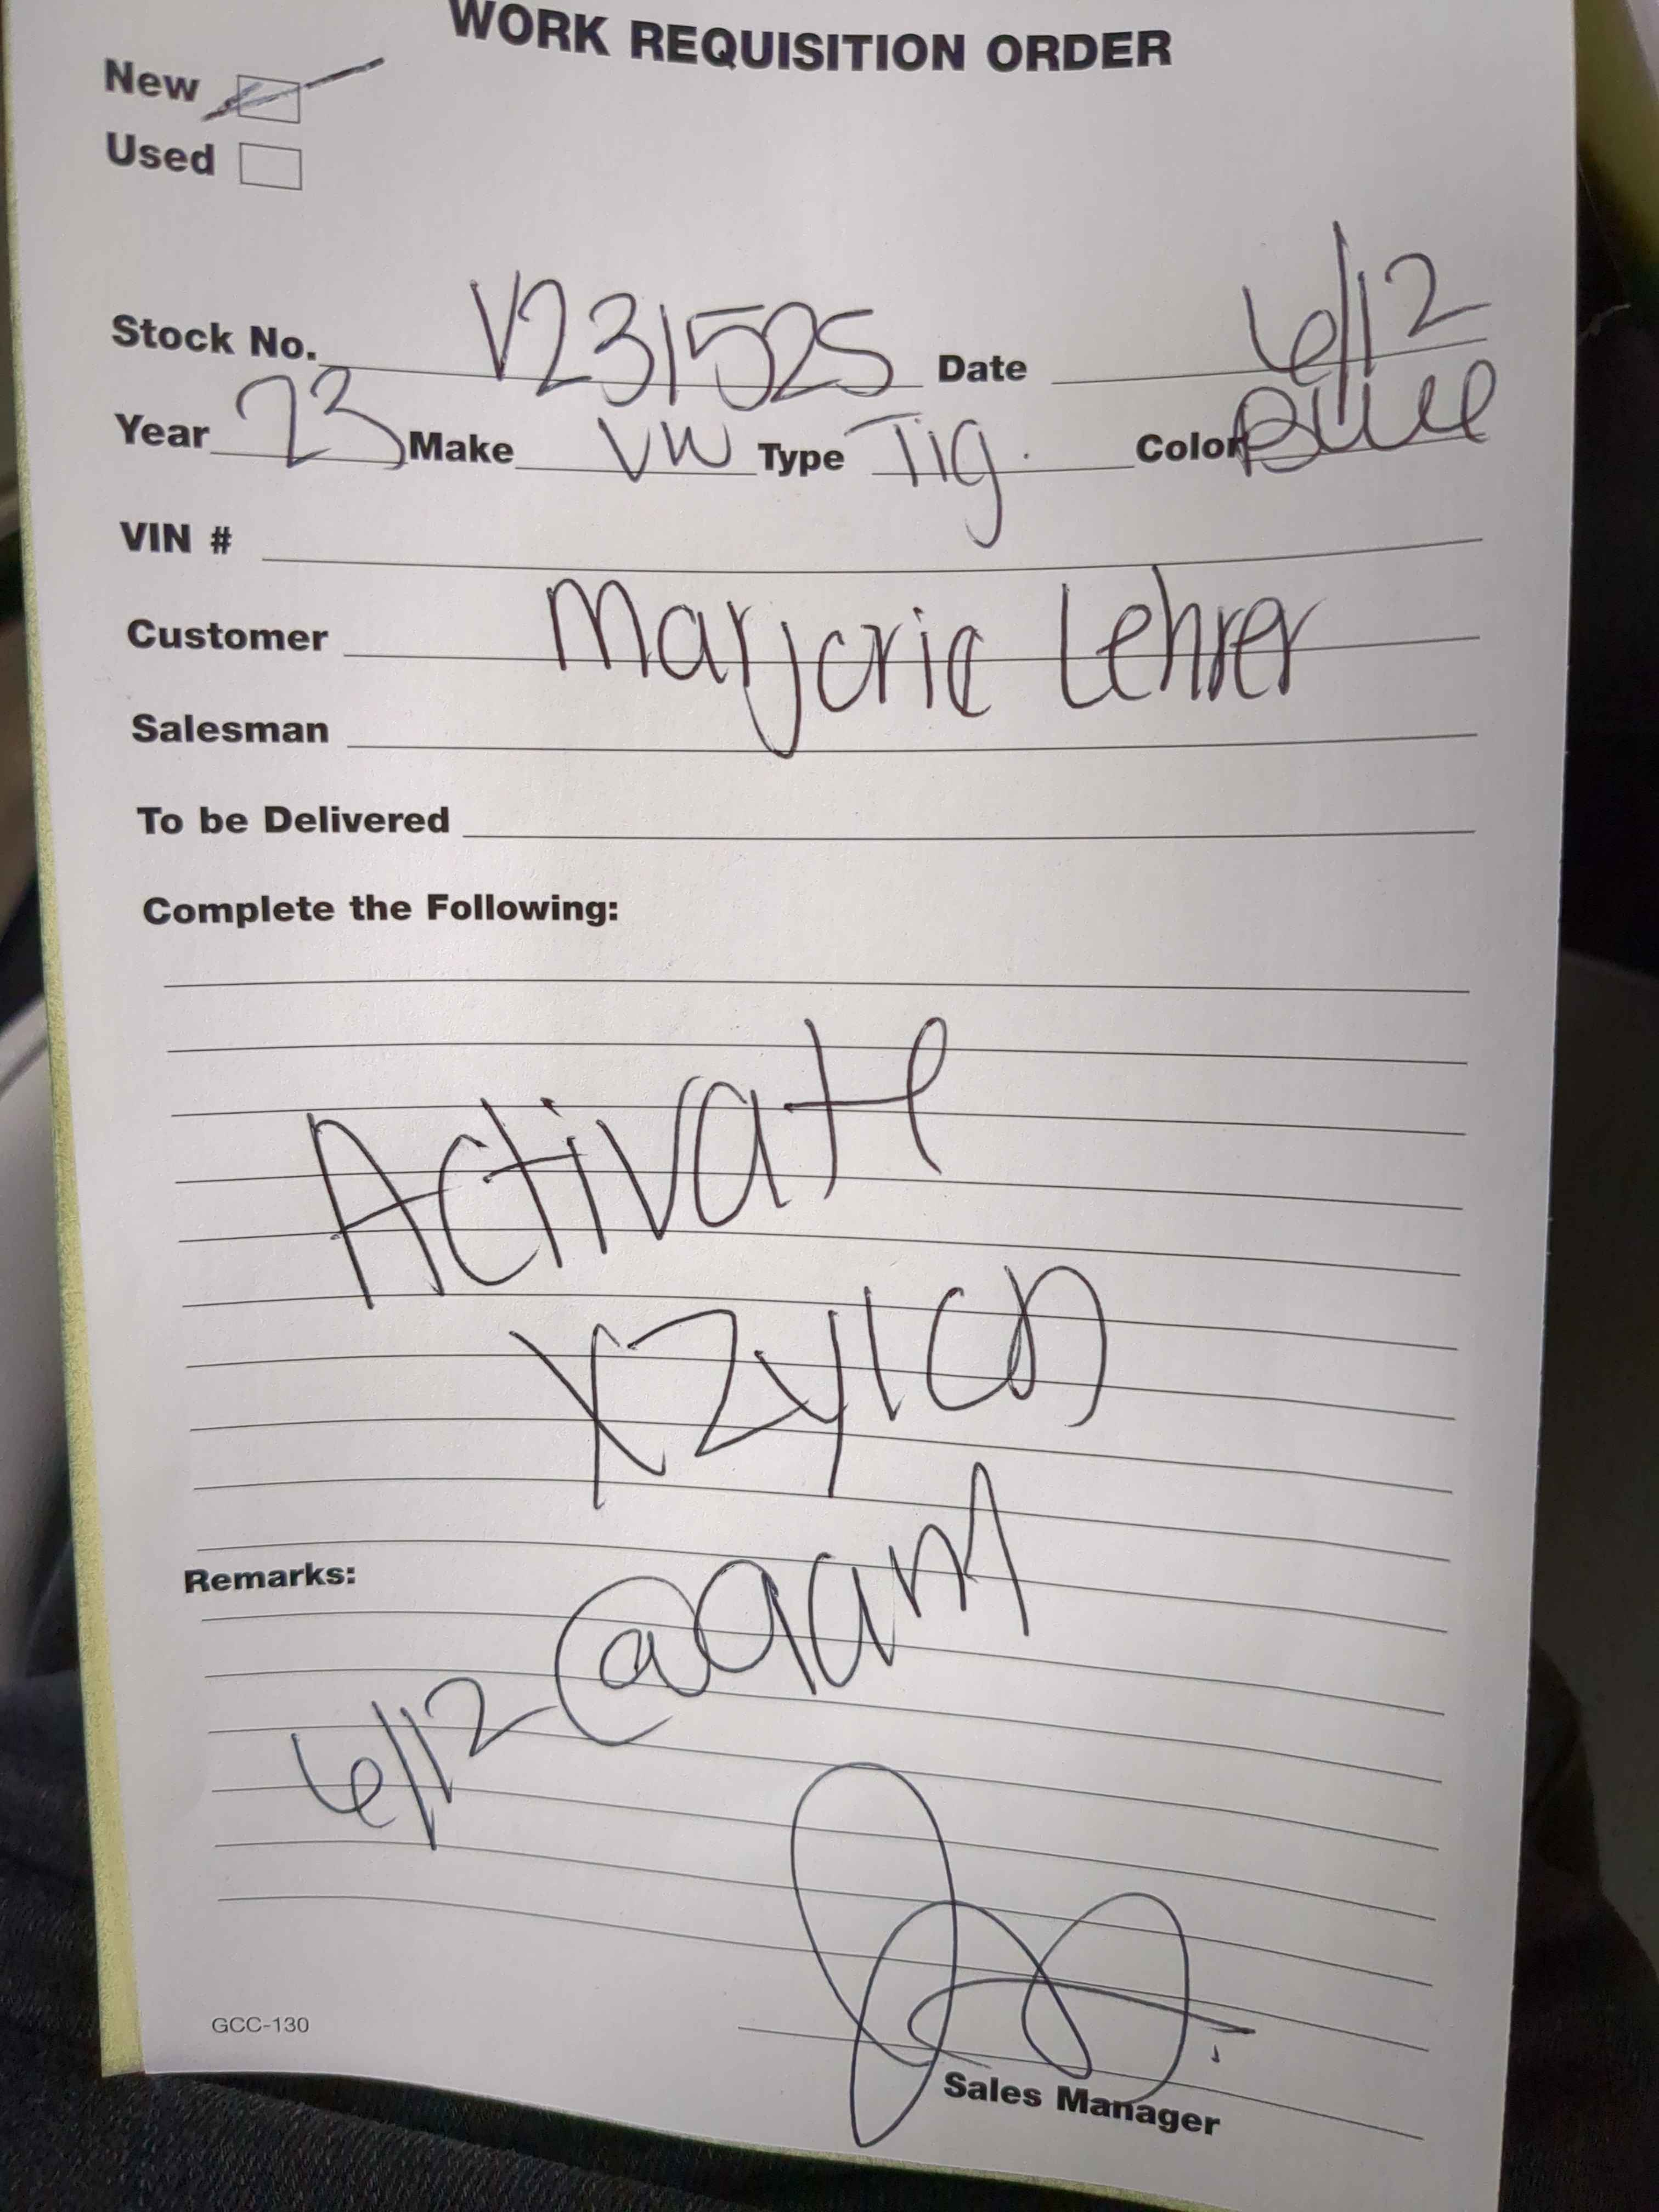 WORK REQUISITION ORDER
New
Used
Stock No. V231525 Date 6/12
Year 23 Make VW Type Tig. Color Blue
VIN #
Customer Marjorie Lehrer
Salesman
To be Delivered
Complete the Following:
Activate
XZylon
Remarks:
6/12 @ 9am
GCC-130
Sales Manager